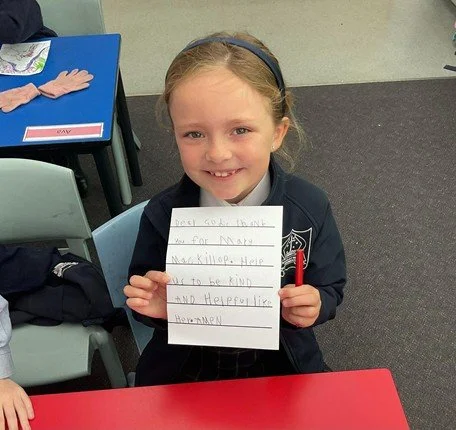 Ava
Dear God, thank
you for Mary
MacKillop. Help
us to be KIND
AND Helpful like
Her. AMEN